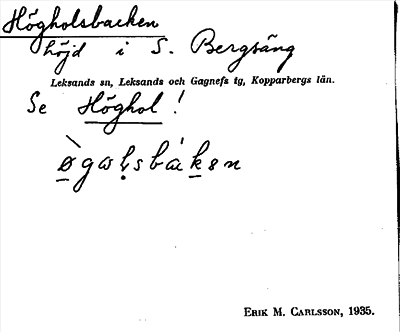 Högholsbacken
höjd i S. Bergsäng
Leksands sn, Leksands och Gagnefs tg, Kopparbergs län.
Se Höghol!
ERIK M. CARLSSON, 1935.